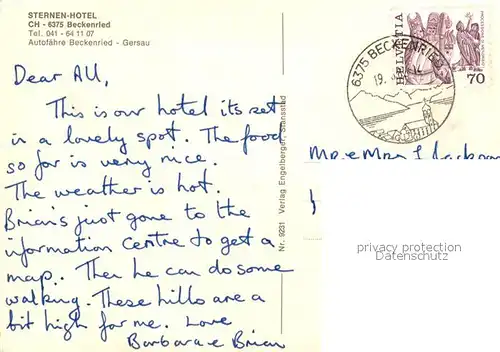 STERNEN-HOTEL
CH - 6375 Beckenried
Tel. 041 - 64 11 07
Autofähre Beckenried - Gersau
Dear All,
This is our hotel its set
in a lovely spot. The food
so far is very nice.
The weather is hot.
Brian's just gone to the
information centre to get a
map. Then he can do some
walking. These hills are a
bit high for me. Love
Barbara e Brian
Nr. 9231 Verlag Engelberger, Stansstad
6375 BECKENRIED
19.
HELVETIA
70
Mr e Mrs
privacy protection
DR. AKPOOL.DE